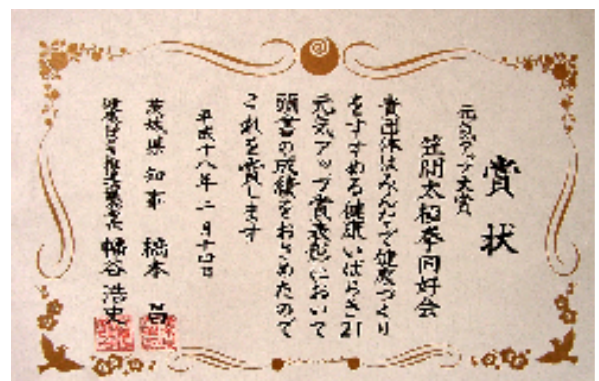 賞状
元気アップ大賞
笠間太極拳同好会
貴団体はみんなで健康づくり
をすすめる健康いばらき21
元気アップ賞表彰において
頭書の成績をおさめたので
これを賞します
平成十八年二月十四日
茨城県知事 橋本 昌
幡谷浩史